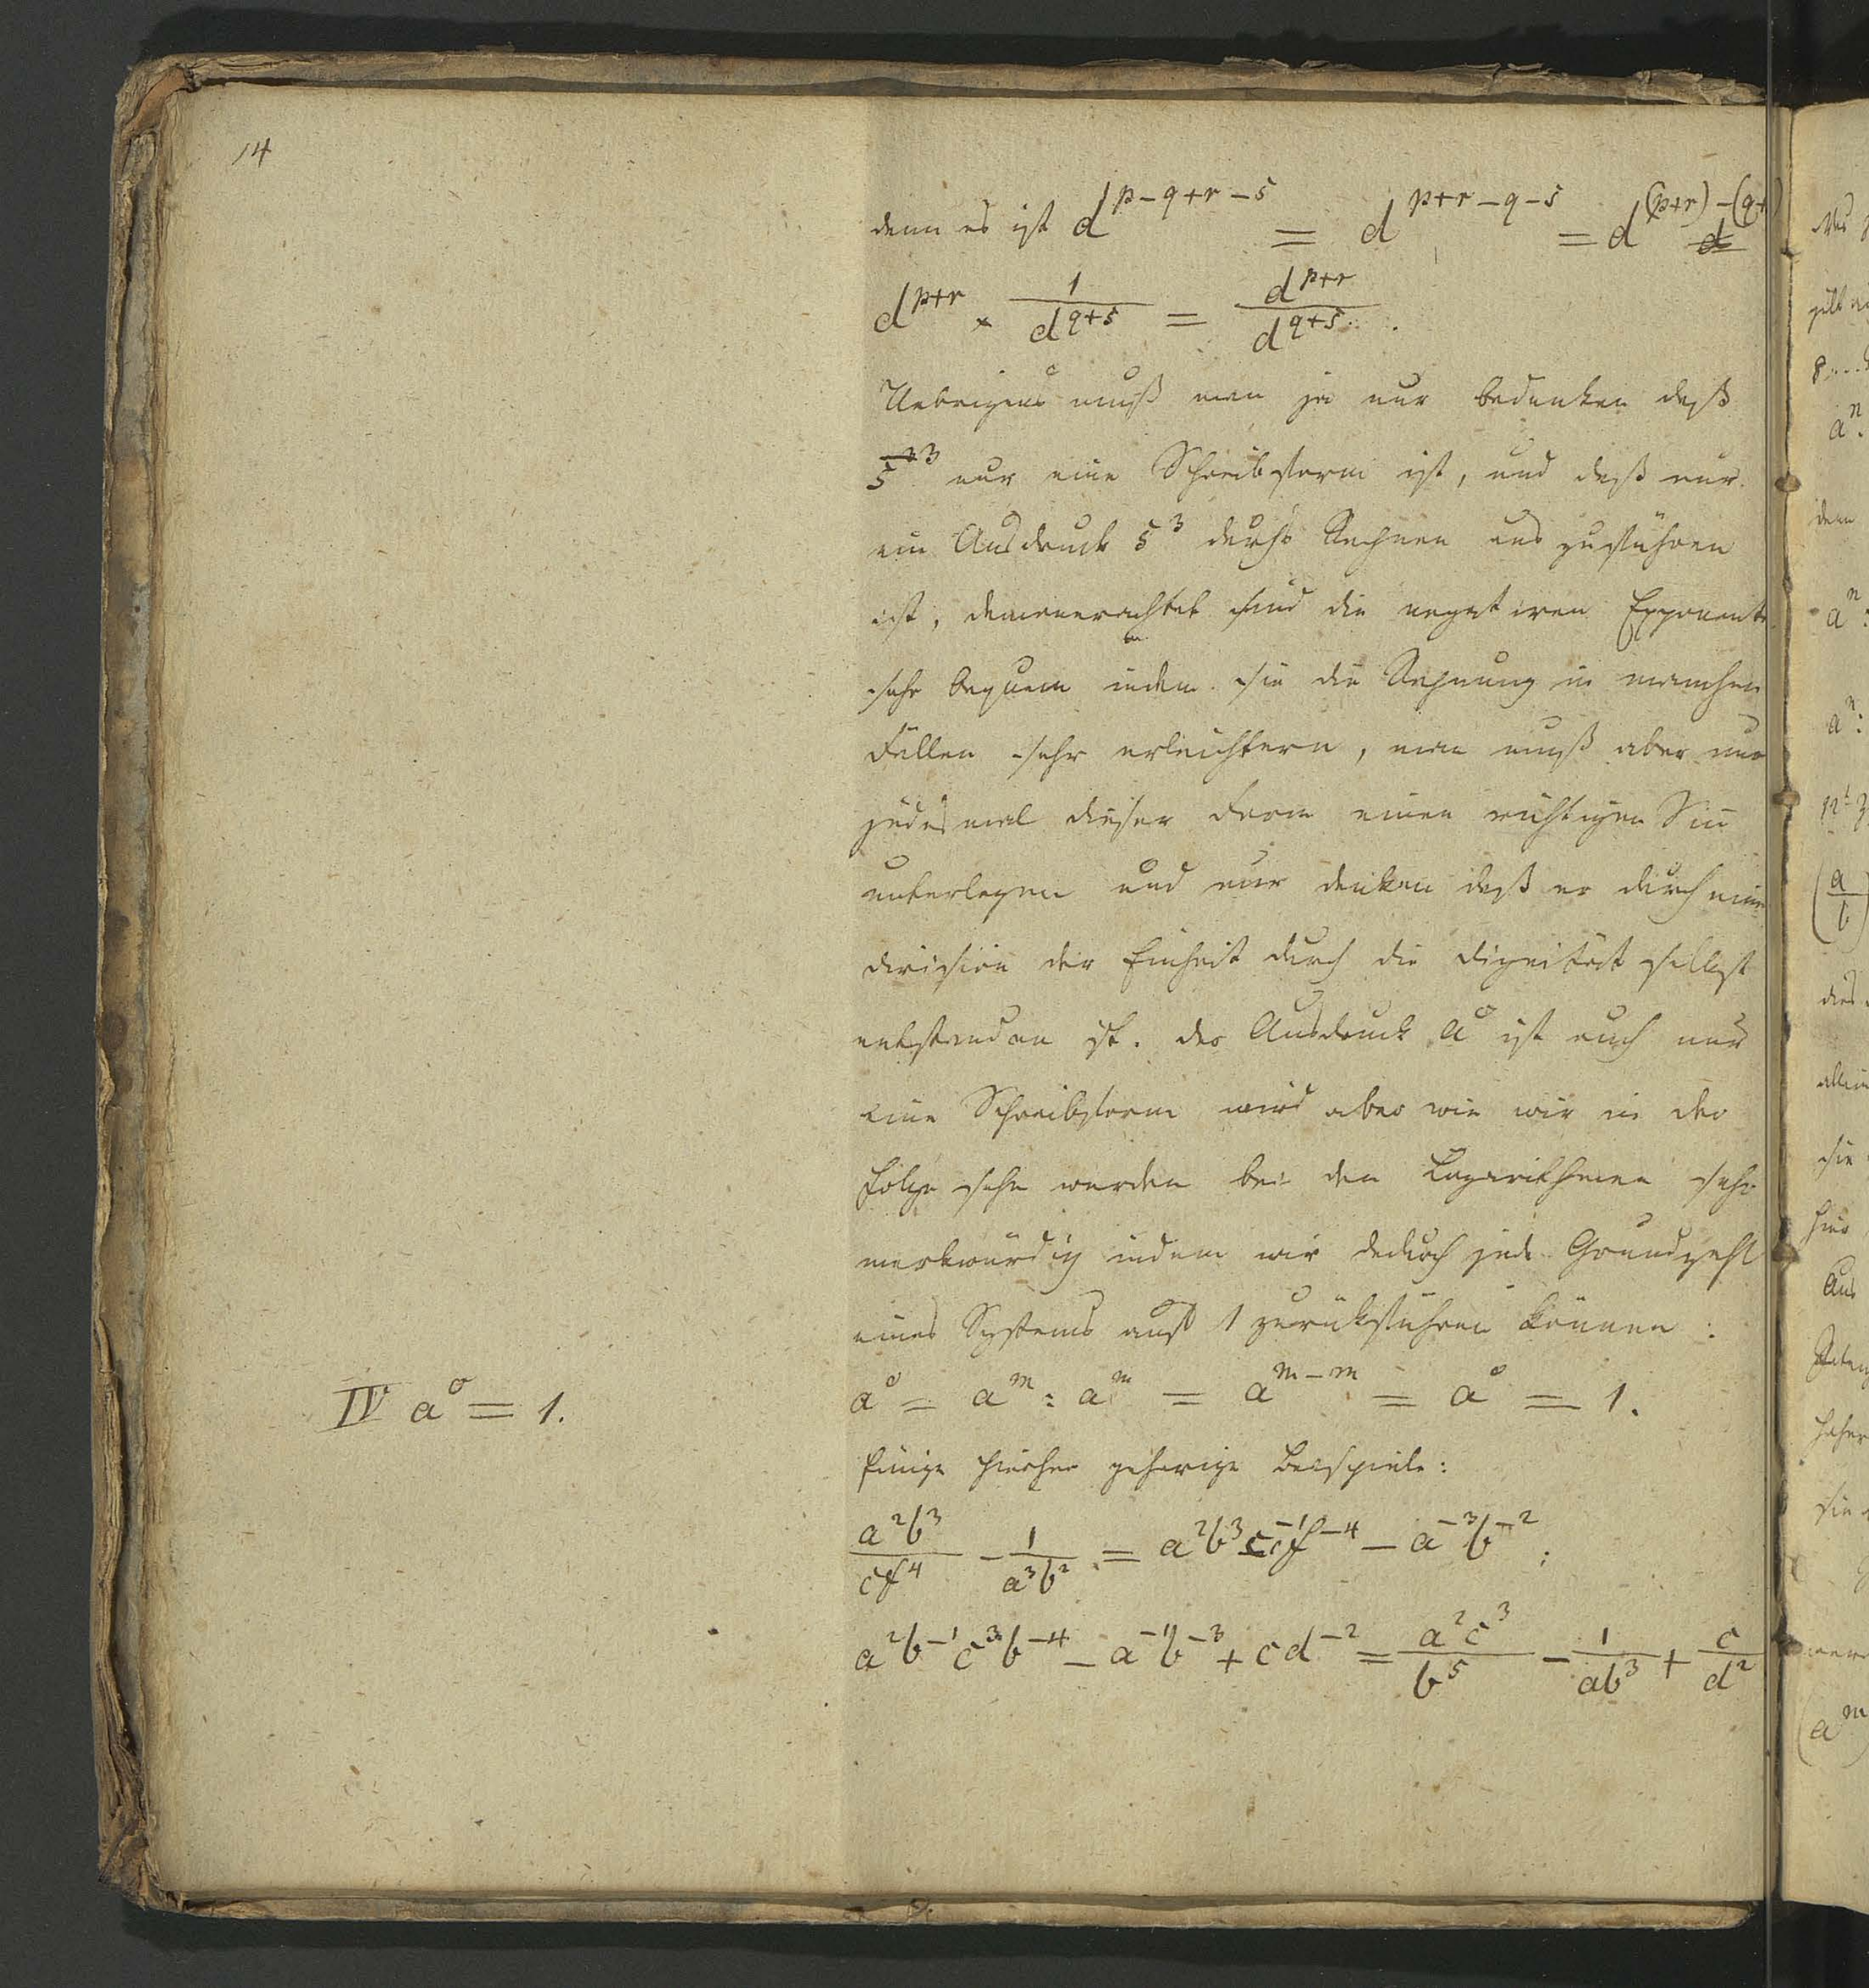 14
denn es ist d^{p-q+r-s} = d^{p+r-q-s} = d^{(p+r)-(q+
d^{p+r} × 1/d^{q+s} = d^{p+r}/d^{q+s}.
Uebrigens muß man ja nur bedenken daß
5^{-3} nur eine Schreibform ist, und daß nur
ein Ausdruck 5^3 durchs Rechnen aus zuführen
ist, demunerachtet sind die negativen Exponent
sehr bequem indem sie die Rechnung in manchen
Fällen sehr erleichtern, man muß aber nur
jedesmal dieser Form einen richtigen Sinn
unterlegen und nur denken daß er durch eine
Division der Einheit durch die Dignität selbst
entstanden ist. der Ausdruck a^0 ist auch nur
eine Schreibform wird aber wie wir in der
Folge sehn werden bei den Logarithmen sehr
merkwürdig indem wir dadurch jede Grundzahl
eines Systems auf 1 zurükführen können:
IV a^0 = 1.
a^0 = a^m : a^m = a^{m-m} = a^0 = 1.
Einige hierher gehörige Beispiele:
a^2b^3/cf^4 - 1/a^3b^2 = a^2b^3c^{-1}f^{-4} - a^{-3}b^{-2};
a^2b^{-1}c^3b^{-4} - a^{-1}b^{-3} + cd^{-2} = a^2c^3/b^5 - 1/ab^3 + c/d^2